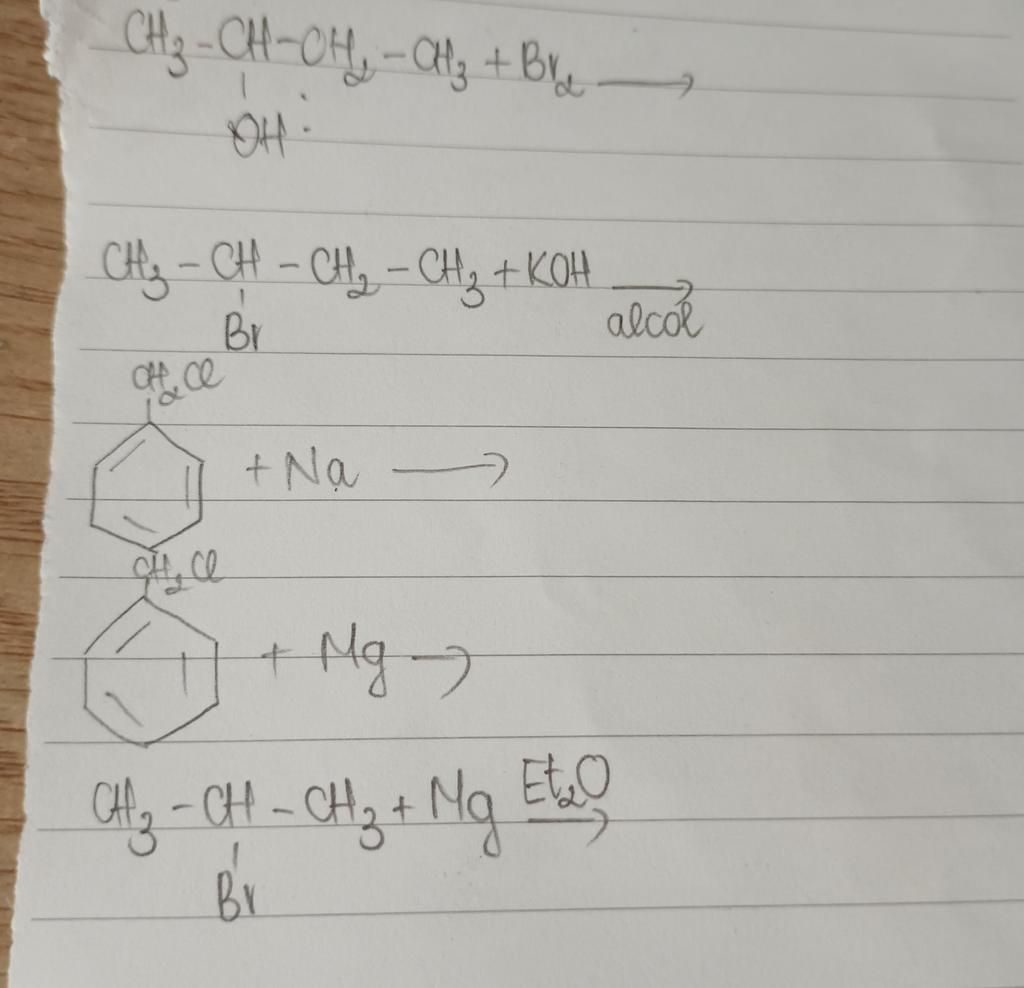 CH₃-CH-CH₂-CH₃ + Br₂ ⟶
OH
CH₃-CH-CH₂-CH₃ + KOH ⟶
Br
alcol
CH₂Cl
+ Na ⟶
CH₂Cl
+ Mg ⟶
CH₃-CH-CH₃ + Mg Et₂O ⟶
Br